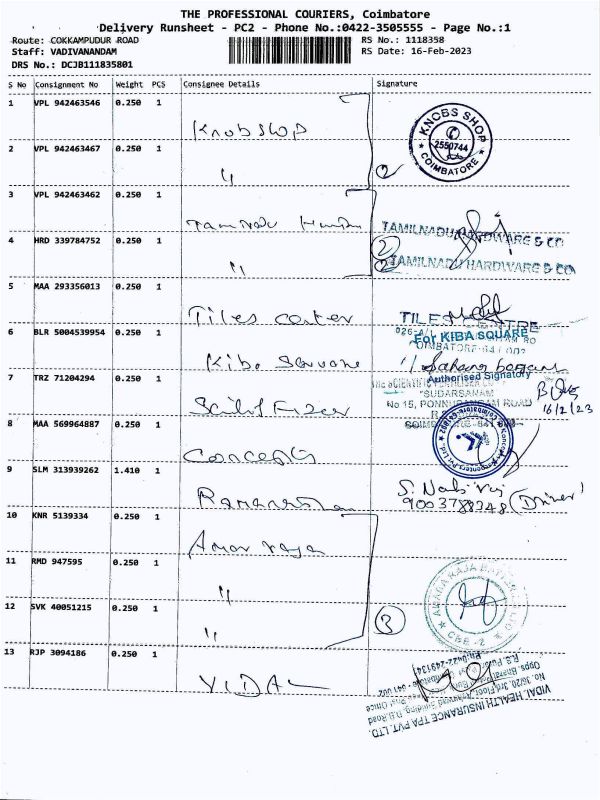 THE PROFESSIONAL COURIERS, Coimbatore
Delivery Runsheet - PC2 - Phone No.:0422-3505555 - Page No.:1
Route: COKKAMPUDUR ROAD RS No.: 1118358
Staff: VADIVANANDAM RS Date: 16-Feb-2023
DRS No.: DCJB111835801
S No Consignment No Weight PCS Consignee Details Signature
1 VPL 942463546 0.250 1
KNOBS SHOP
2550744
COIMBATORE
Knobshop
2 VPL 942463467 0.250 1
" 2
3 VPL 942463462 0.250 1
Tamilnadu TAMILNADU HARDWARE & CO
4 HRD 339784752 0.250 1 2
" 2 TAMILNADU HARDWARE & CO
5 MAA 293356013 0.250 1
Tiles center TILES CENTRE
6 BLR 5004539954 0.250 1 For KIBA SQUARE
Kiba Square
7 TRZ 71204294 0.250 1 Authorised Signatory
"SUDARSANAM
No 15, PONNURANGAM ROAD
16/2/23
8 MAA 569964887 0.250 1
Concepts
9 SLM 313939262 1.410 1
9003788348 (Driver)
10 KNR 5139334 0.250 1
Amar raja
11 RMD 947595 0.250 1
"
12 SVK 40051215 0.250 1
" 3
AMARA RAJA
CBE-2
13 RJP 3094186 0.250 1
VIDAL
VIDAL HEALTH INSURANCE TPA PVT. LTD.